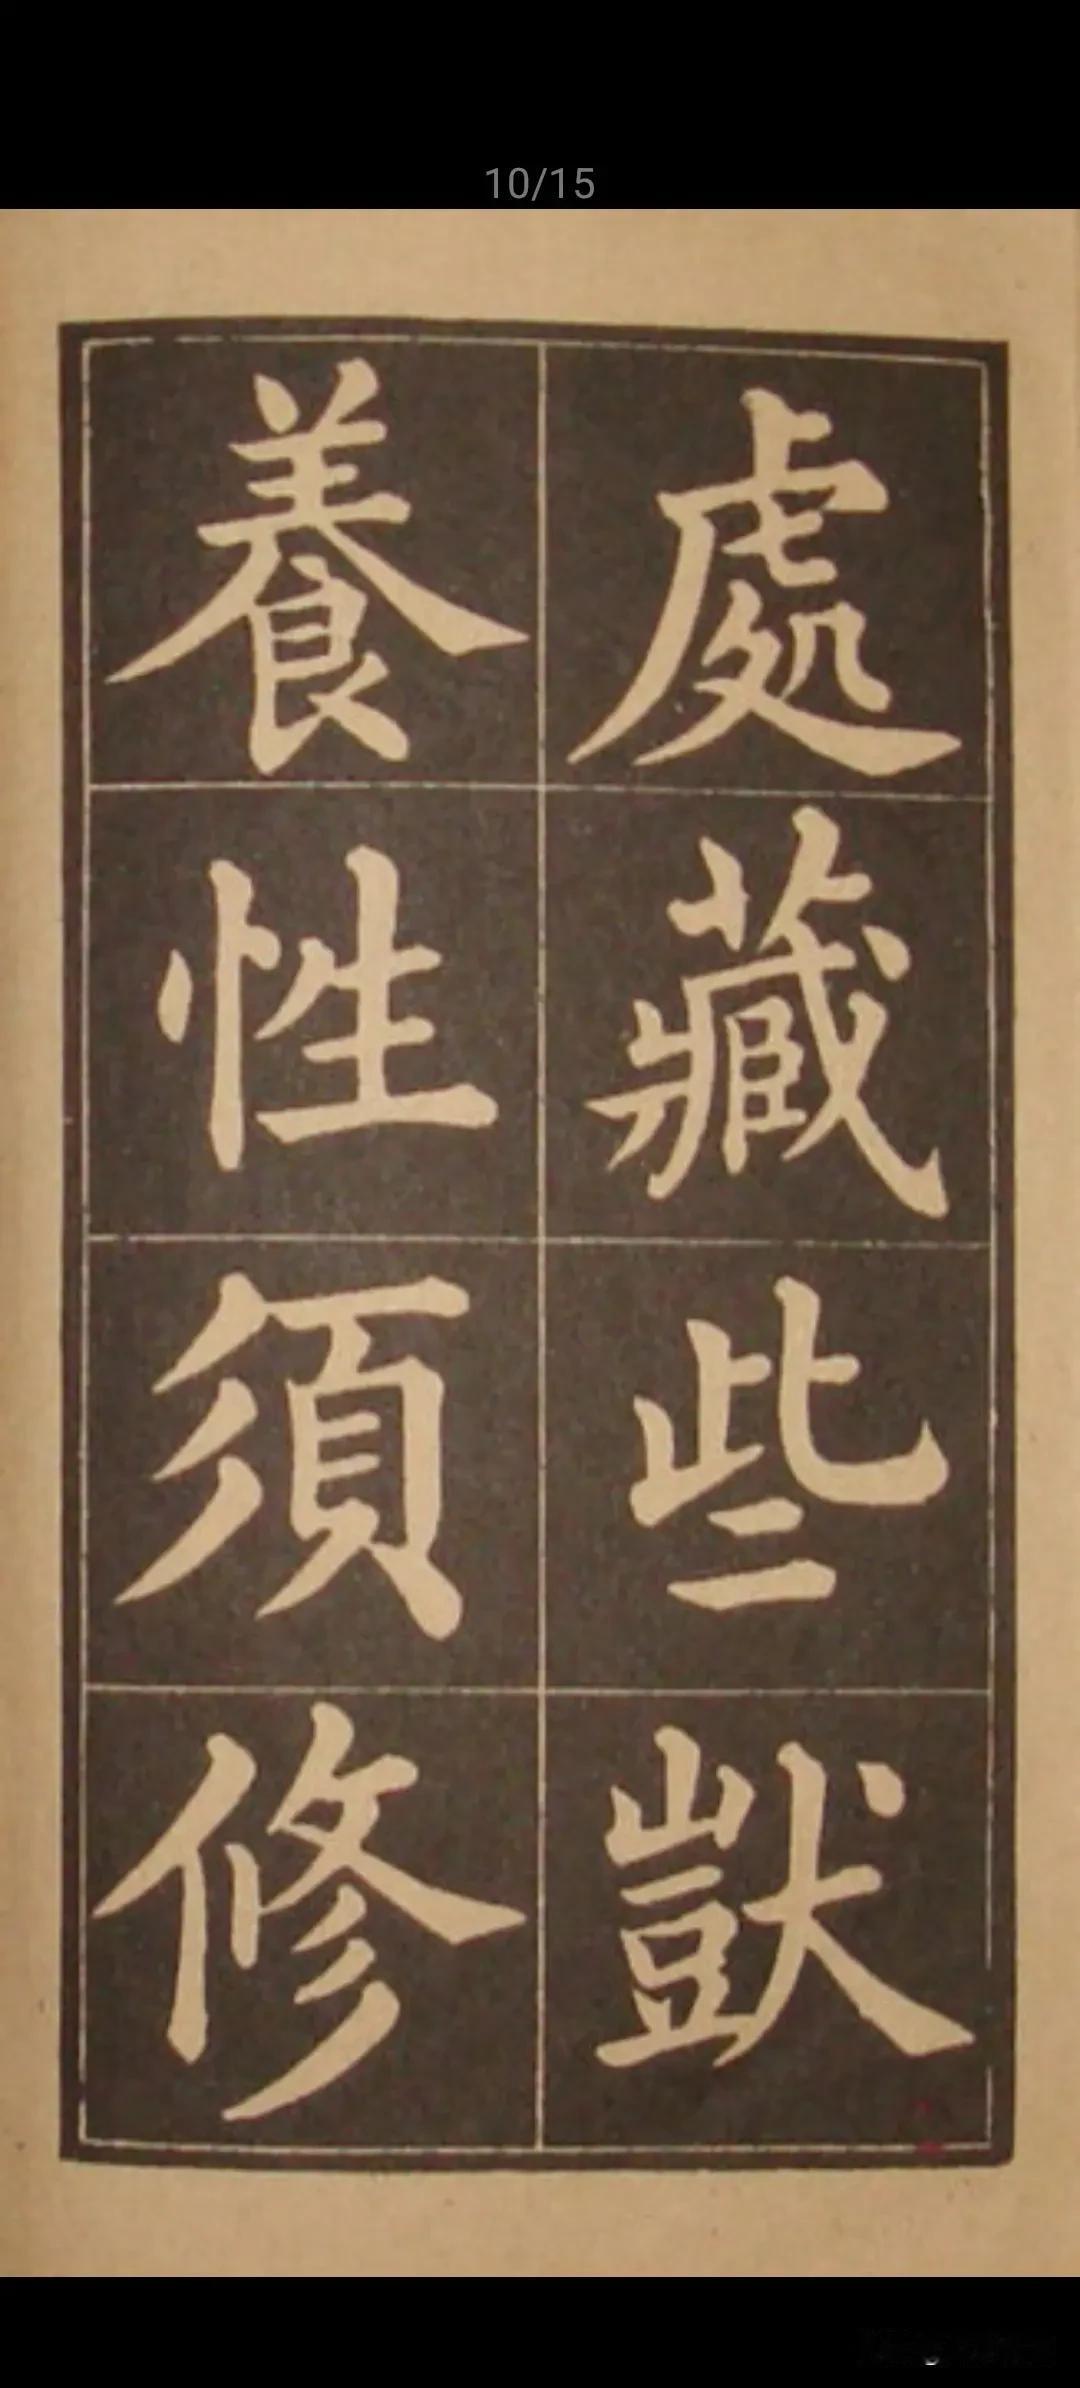 10/15
處藏些獃
養性須修